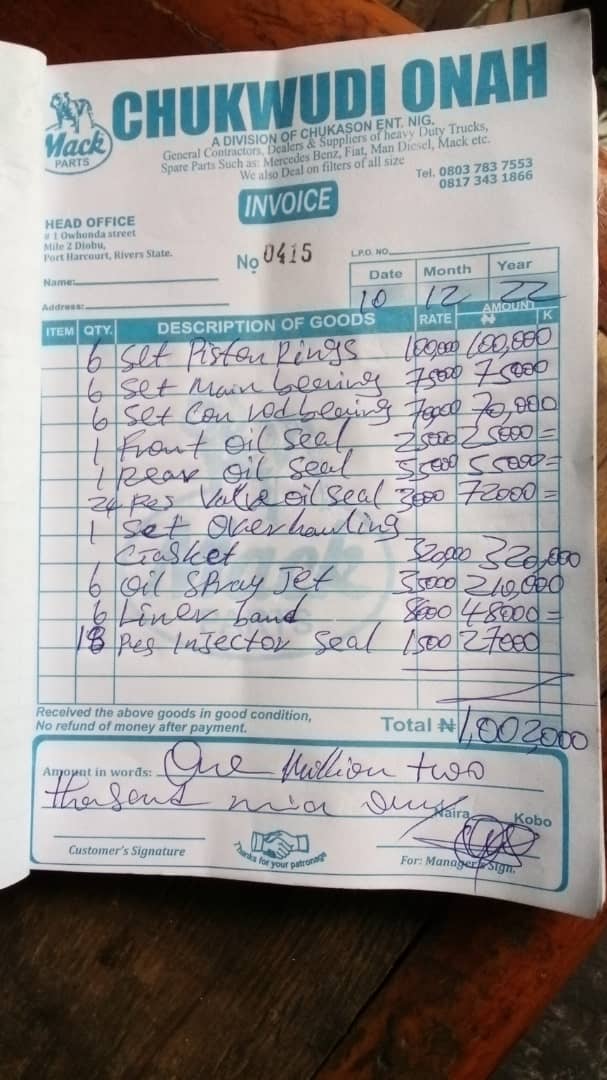 Mack
PARTS
CHUKWUDI ONAH
A DIVISION OF CHUKASON ENT. NIG.
General Contractors, Dealers & Suppliers of heavy Duty Trucks,
Spare Parts Such as: Mercedes Benz, Fiat, Man Diesel, Mack etc.
We also Deal on filters of all size
Tel. 0803 783 7553
0817 343 1866
INVOICE
HEAD OFFICE
# 1 Owhonda street
Mile 2 Diobu,
Port Harcourt, Rivers State.
No 0415
L.P.O. NO.
Name:
Address:
Date Month Year
10 12 22
ITEM QTY. DESCRIPTION OF GOODS RATE AMOUNT ₦ K
6 Set Piston Rings 100,000 100,000
6 Set Main bearing 75000 75000
6 Set Con rod bearing 70000 70,000
1 Front oil Seal 25000 25000=
1 Rear oil Seal 55000 55000=
24 Pes Valve oil Seal 3000 72000=
1 Set Overhauling
Gasket 320,000 320,000
6 Oil Spray Jet 35000 210,000
6 Liner band 8000 48000=
18 Pes Injector Seal 1500 27000
Received the above goods in good condition,
No refund of money after payment.
Total ₦ 1,002,000
Amount in words: One Million two
thousand naira only Naira Kobo
Customer's Signature
Thanks for your patronage
For: Manager's Sign.